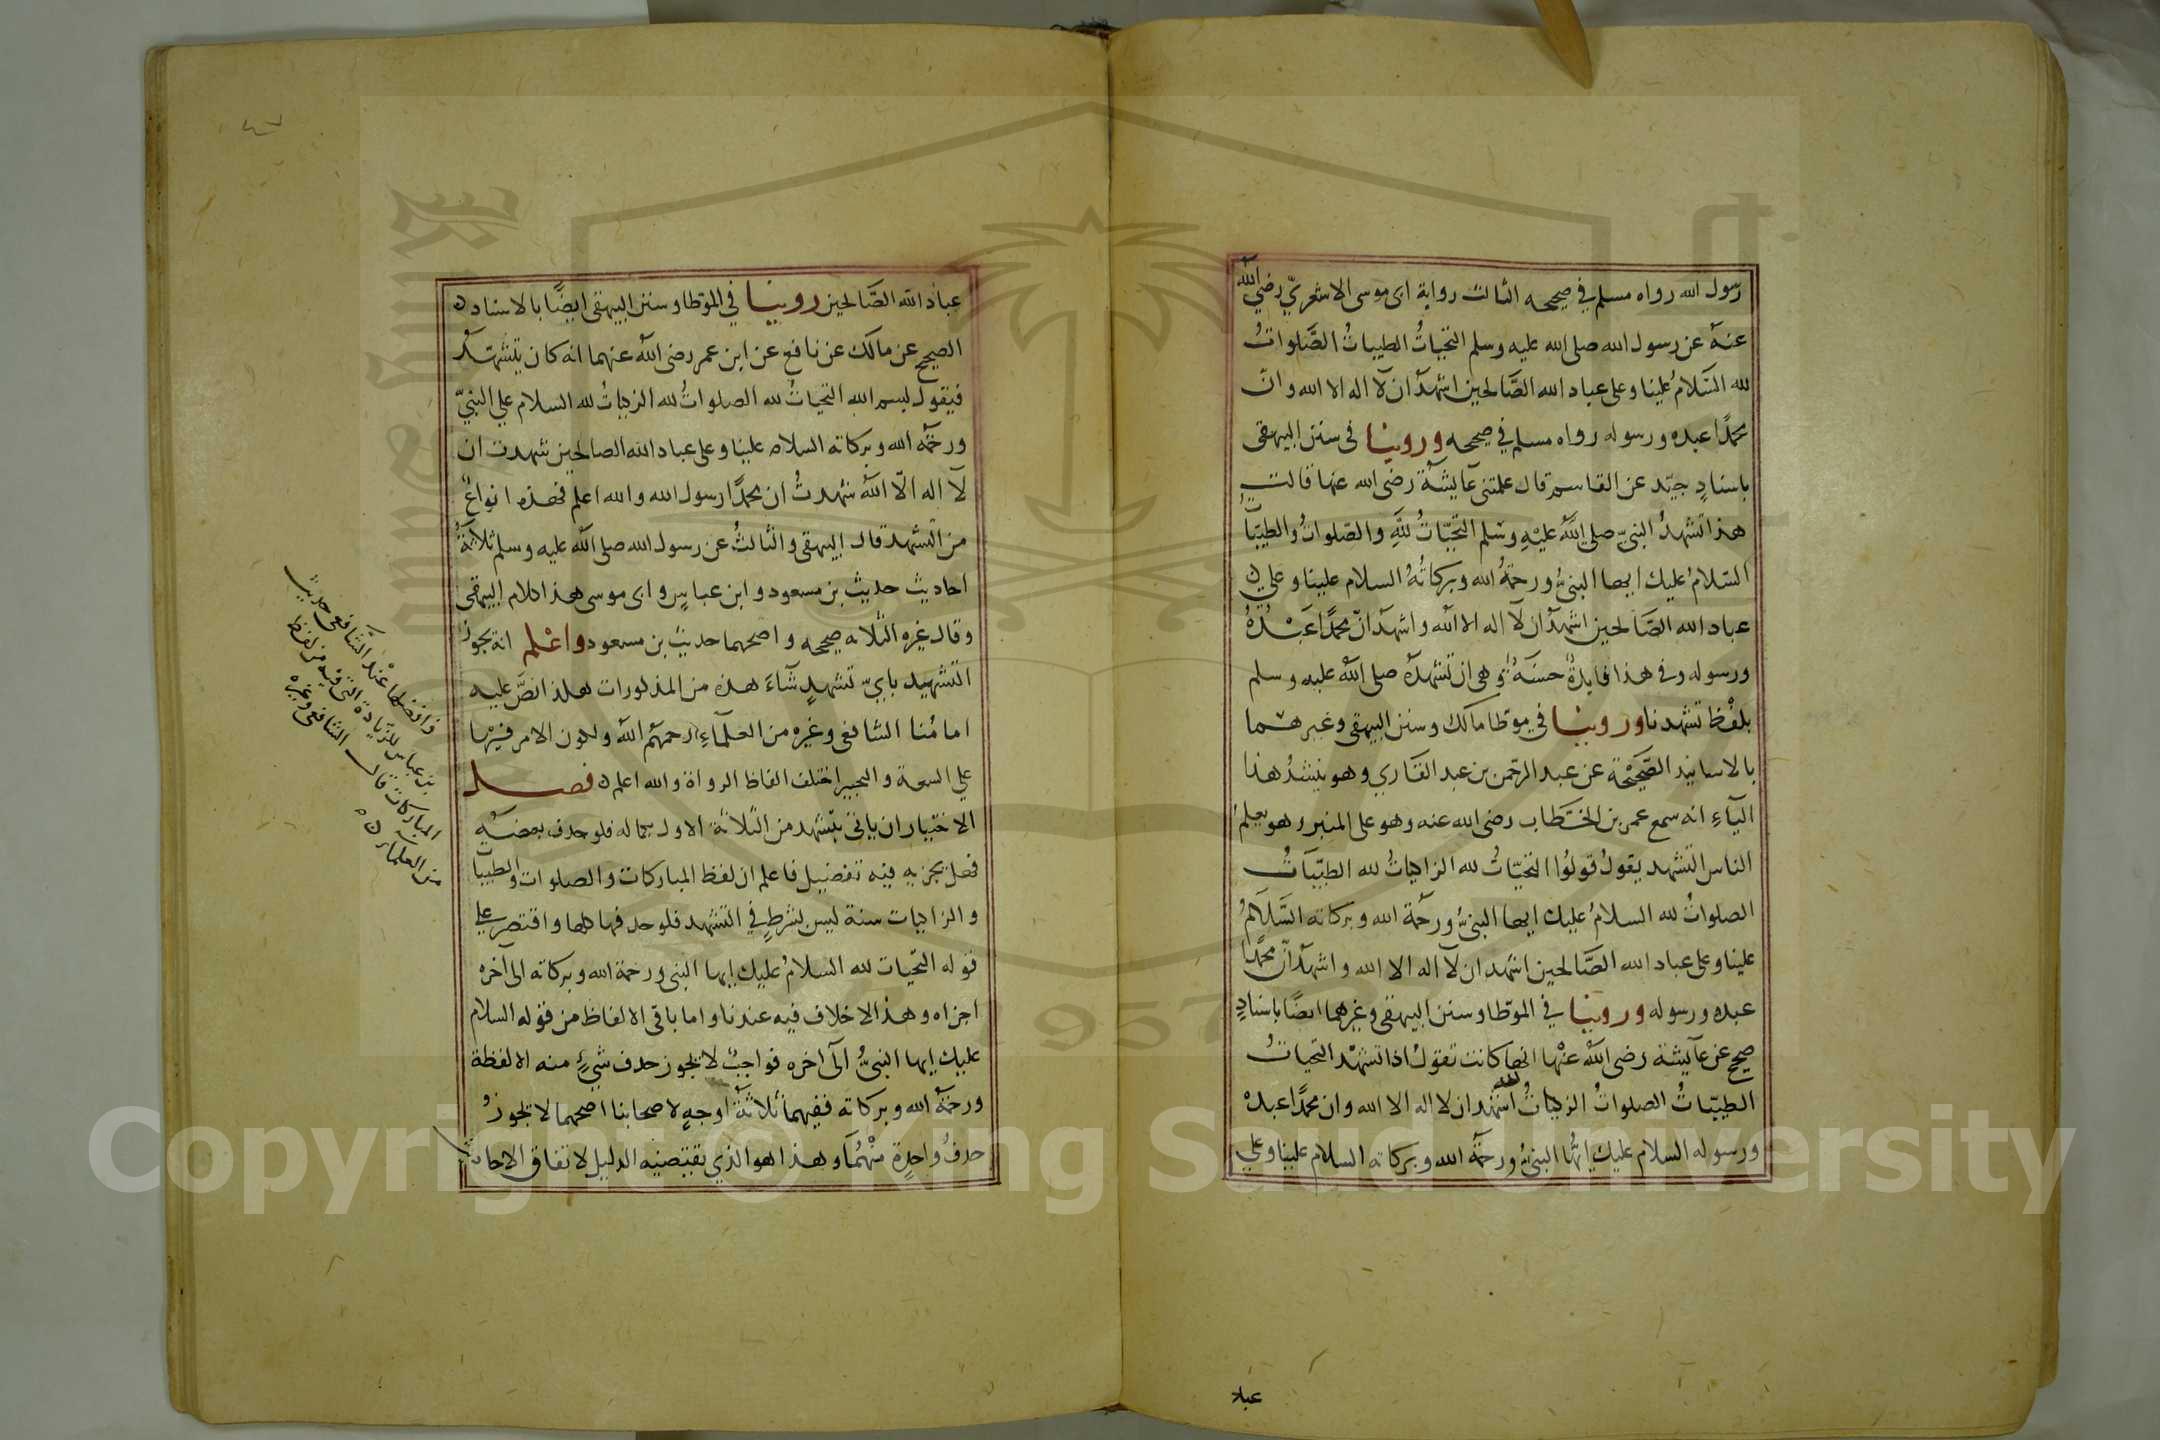 رسول الله رواه مسلم في صحيحه الثالث رواية ابى موسى الاشعري رضي الله
عنه عن رسول الله صلى الله عليه وسلم التحيات الطيبات الصلوات
لله السلام علينا وعلى عباد الله الصالحين اشهد ان لا اله الا الله وان
محمدا عبده ورسوله رواه مسلم في صحيحه وروينا فى سنن البيهقى
باسناد جيد عن القاسم قال علمتنى عايشة رضى الله عنها قالت
هذا تشهد النبي صلى الله عليه وسلم التحيات لله والصلوات والطيبات
السلام عليك ايها النبي ورحمة الله وبركاته السلام علينا وعلى
عباد الله الصالحين اشهد ان لا اله الا الله واشهد ان محمدا عبده
ورسوله وفى هذا فايدة حسنة وهى ان تشهده صلى الله عليه وسلم
بلفظ تشهدنا وروينا في موطا مالك وسنن البيهقى وغيرهما
بالاسانيد الصحيحة عن عبد الرحمن بن عبد القاري وهو بتشديد هذا
الياء انه سمع عمر بن الخطاب رضى الله عنه وهو على المنبر وهو يعلم
الناس التشهد يقول قولوا التحيات لله الزاكيات لله الطيبات
الصلوات لله السلام عليك ايها النبي ورحمة الله وبركاته السلام
علينا وعلى عباد الله الصالحين اشهد ان لا اله الا الله واشهد ان محمدا
عبده ورسوله وروينا في الموطا وسنن البيهقى وغيرهما ايضا باسناد
صحيح عن عايشة رضى الله عنها انها كانت تقول اذا تشهد التحيات
الطيبات الصلوات الزاكيات لله اشهد ان لا اله الا الله وان محمدا عبده
ورسوله السلام عليك ايها النبي ورحمة الله وبركاته السلام علينا وعلى
عباد
عباد الله الصالحين روينا في الموطا وسنن البيهقى ايضا بالاسناد
الصحيح عن مالك عن نافع عن ابن عمر رضى الله عنهما انه كان يتشهد
فيقول بسم الله التحيات لله الصلوات لله الزاكيات لله السلام على النبي
ورحمة الله وبركاته السلام علينا وعلى عباد الله الصالحين شهدت ان
لا اله الا الله شهدت ان محمدا رسول الله والله اعلم فهذه انواع
من التشهد قال البيهقى والثالث عن رسول الله صلى الله عليه وسلم ثلاثة
احاديث حديث بن مسعود وابن عباس وابى موسى هذا كلام البيهقى
وقال غيره الثلاثه صحيحه واصحهما حديث بن مسعود واعلم انه يجوز
التشهيد باي تشهد شاء هذه من المذكورات هكذا نص عليه
امامنا الشافعى وغيره من العلماء رحمهم الله ولكون الامر فيها
على السعة والتخيير اختلف الفاظ الرواة والله اعلم فصل
الاختيار ان ياتى بتشهد من الثلاثة الاول بكماله فلو حذف بعضه
فهل يجزيه فيه تفصيل فاعلم ان لفظ المباركات والصلوات والطيبات
والزاكيات سنة ليس بشرط في التشهد فلو حذفها كلها واقتصر على
قوله التحيات لله السلام عليك ايها النبى ورحمة الله وبركاته الى آخره
اجزاه وهذا لا خلاف فيه عندنا واما باقى الالفاظ من قوله السلام
عليك ايها النبي الى اخره فواجب لا يجوز حذف شيء منه الا لفظة
ورحمة الله وبركاته ففيهما ثلاثة اوجه لاصحابنا اصحهما لا يجوز
حذف واحدة منهما وهذا هو الذي يقتضيه الدليل لاتفاق الاحاديث
وافضلها عند الشافعى حديث
بن عباس للزيادة التى فيه من لفظ
المباركات قال الشافعى وغيره
من العلماء
Copyright © King Saud University
1957